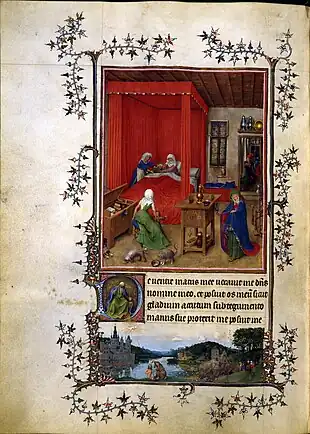 De ventre matris mee vocavit me dn̄s
nomine meo, et posuit os meū sicut
gladium acutum sub tegumento
manus sue protexit me posuit me